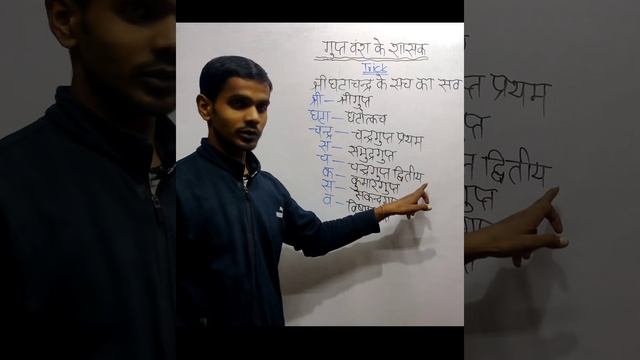 गुप्त वंश के शासक
Trick
श्री घटाचन्द्र के सच का सव
श्री – श्रीगुप्त
घटा – घटोत्कच
चन्द्र – चन्द्रगुप्त प्रथम
स – समुद्रगुप्त
च – चन्द्रगुप्त द्वितीय
क – कुमारगुप्त
स – सकन्दगुप्त
व –